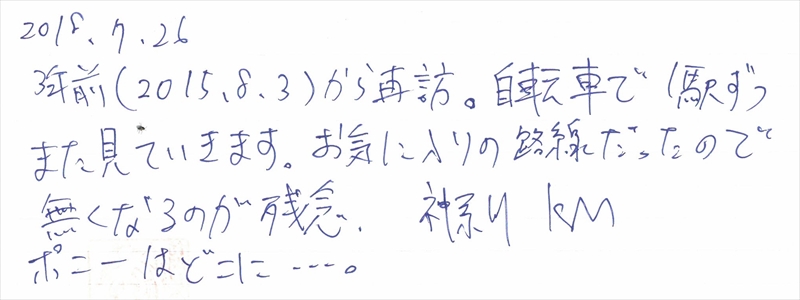 2018.7.26
3年前(2015.8.3)から再訪。自転車で1駅ずつ
また見ていきます。お気に入りの路線だったので
無くなるのが残念. 神奈川 KM
ポニーはどこに……。